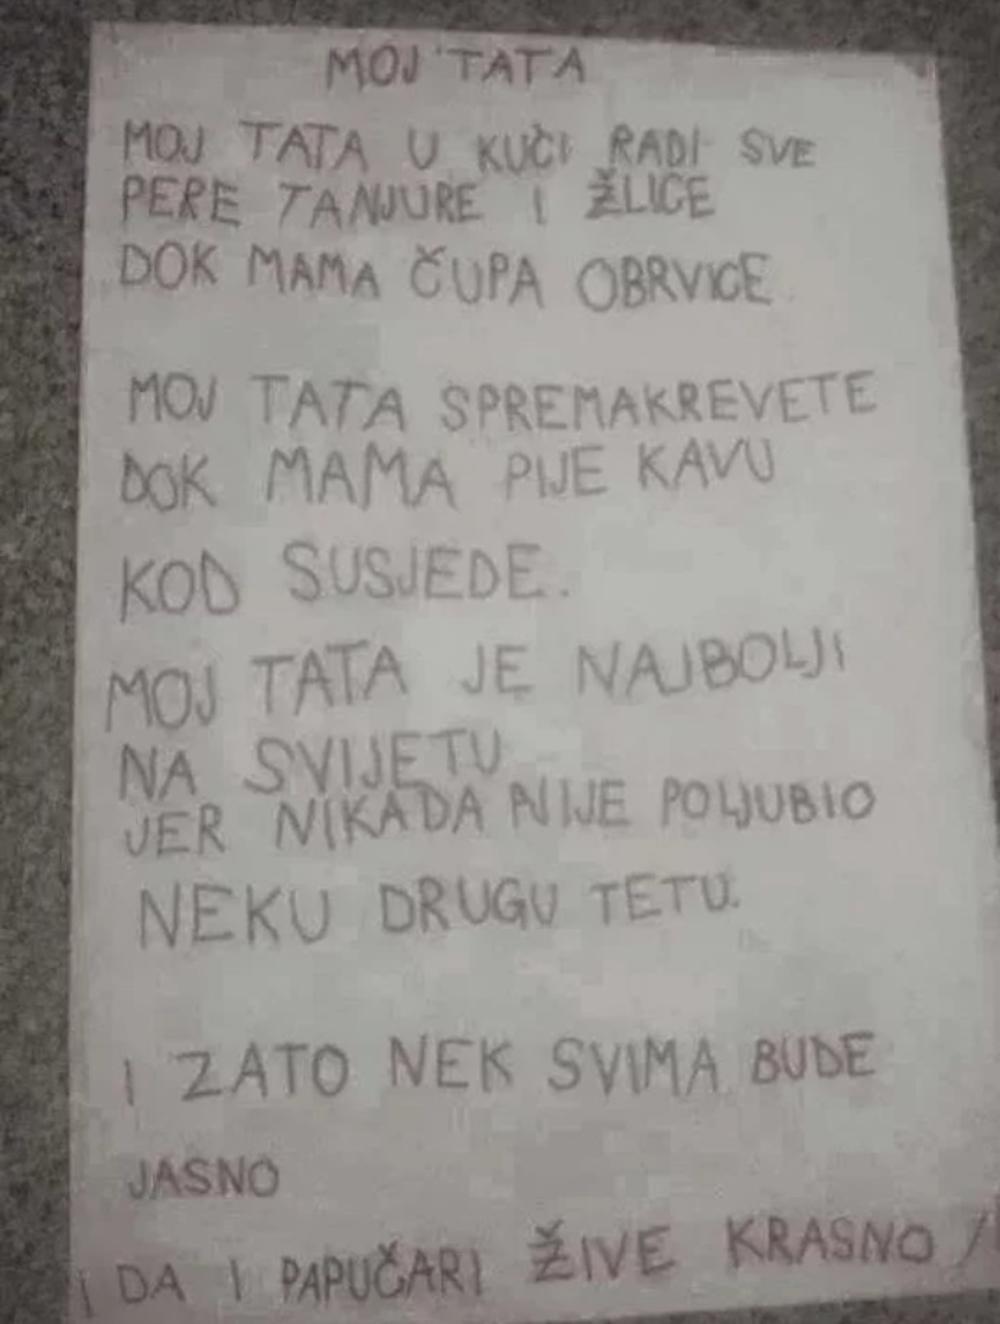 MOJ TATA
MOJ TATA U KUĆI RADI SVE
PERE TANJURE I ŽLICE
DOK MAMA ČUPA OBRVICE
MOJ TATA SPREMAKREVETE
DOK MAMA PIJE KAVU
KOD SUSJEDE.
MOJ TATA JE NAJBOLJI
NA SVIJETU
JER NIKADA NIJE POLJUBIO
NEKU DRUGU TETU.
I ZATO NEK SVIMA BUDE
JASNO
I DA I PAPUČARI ŽIVE KRASNO !